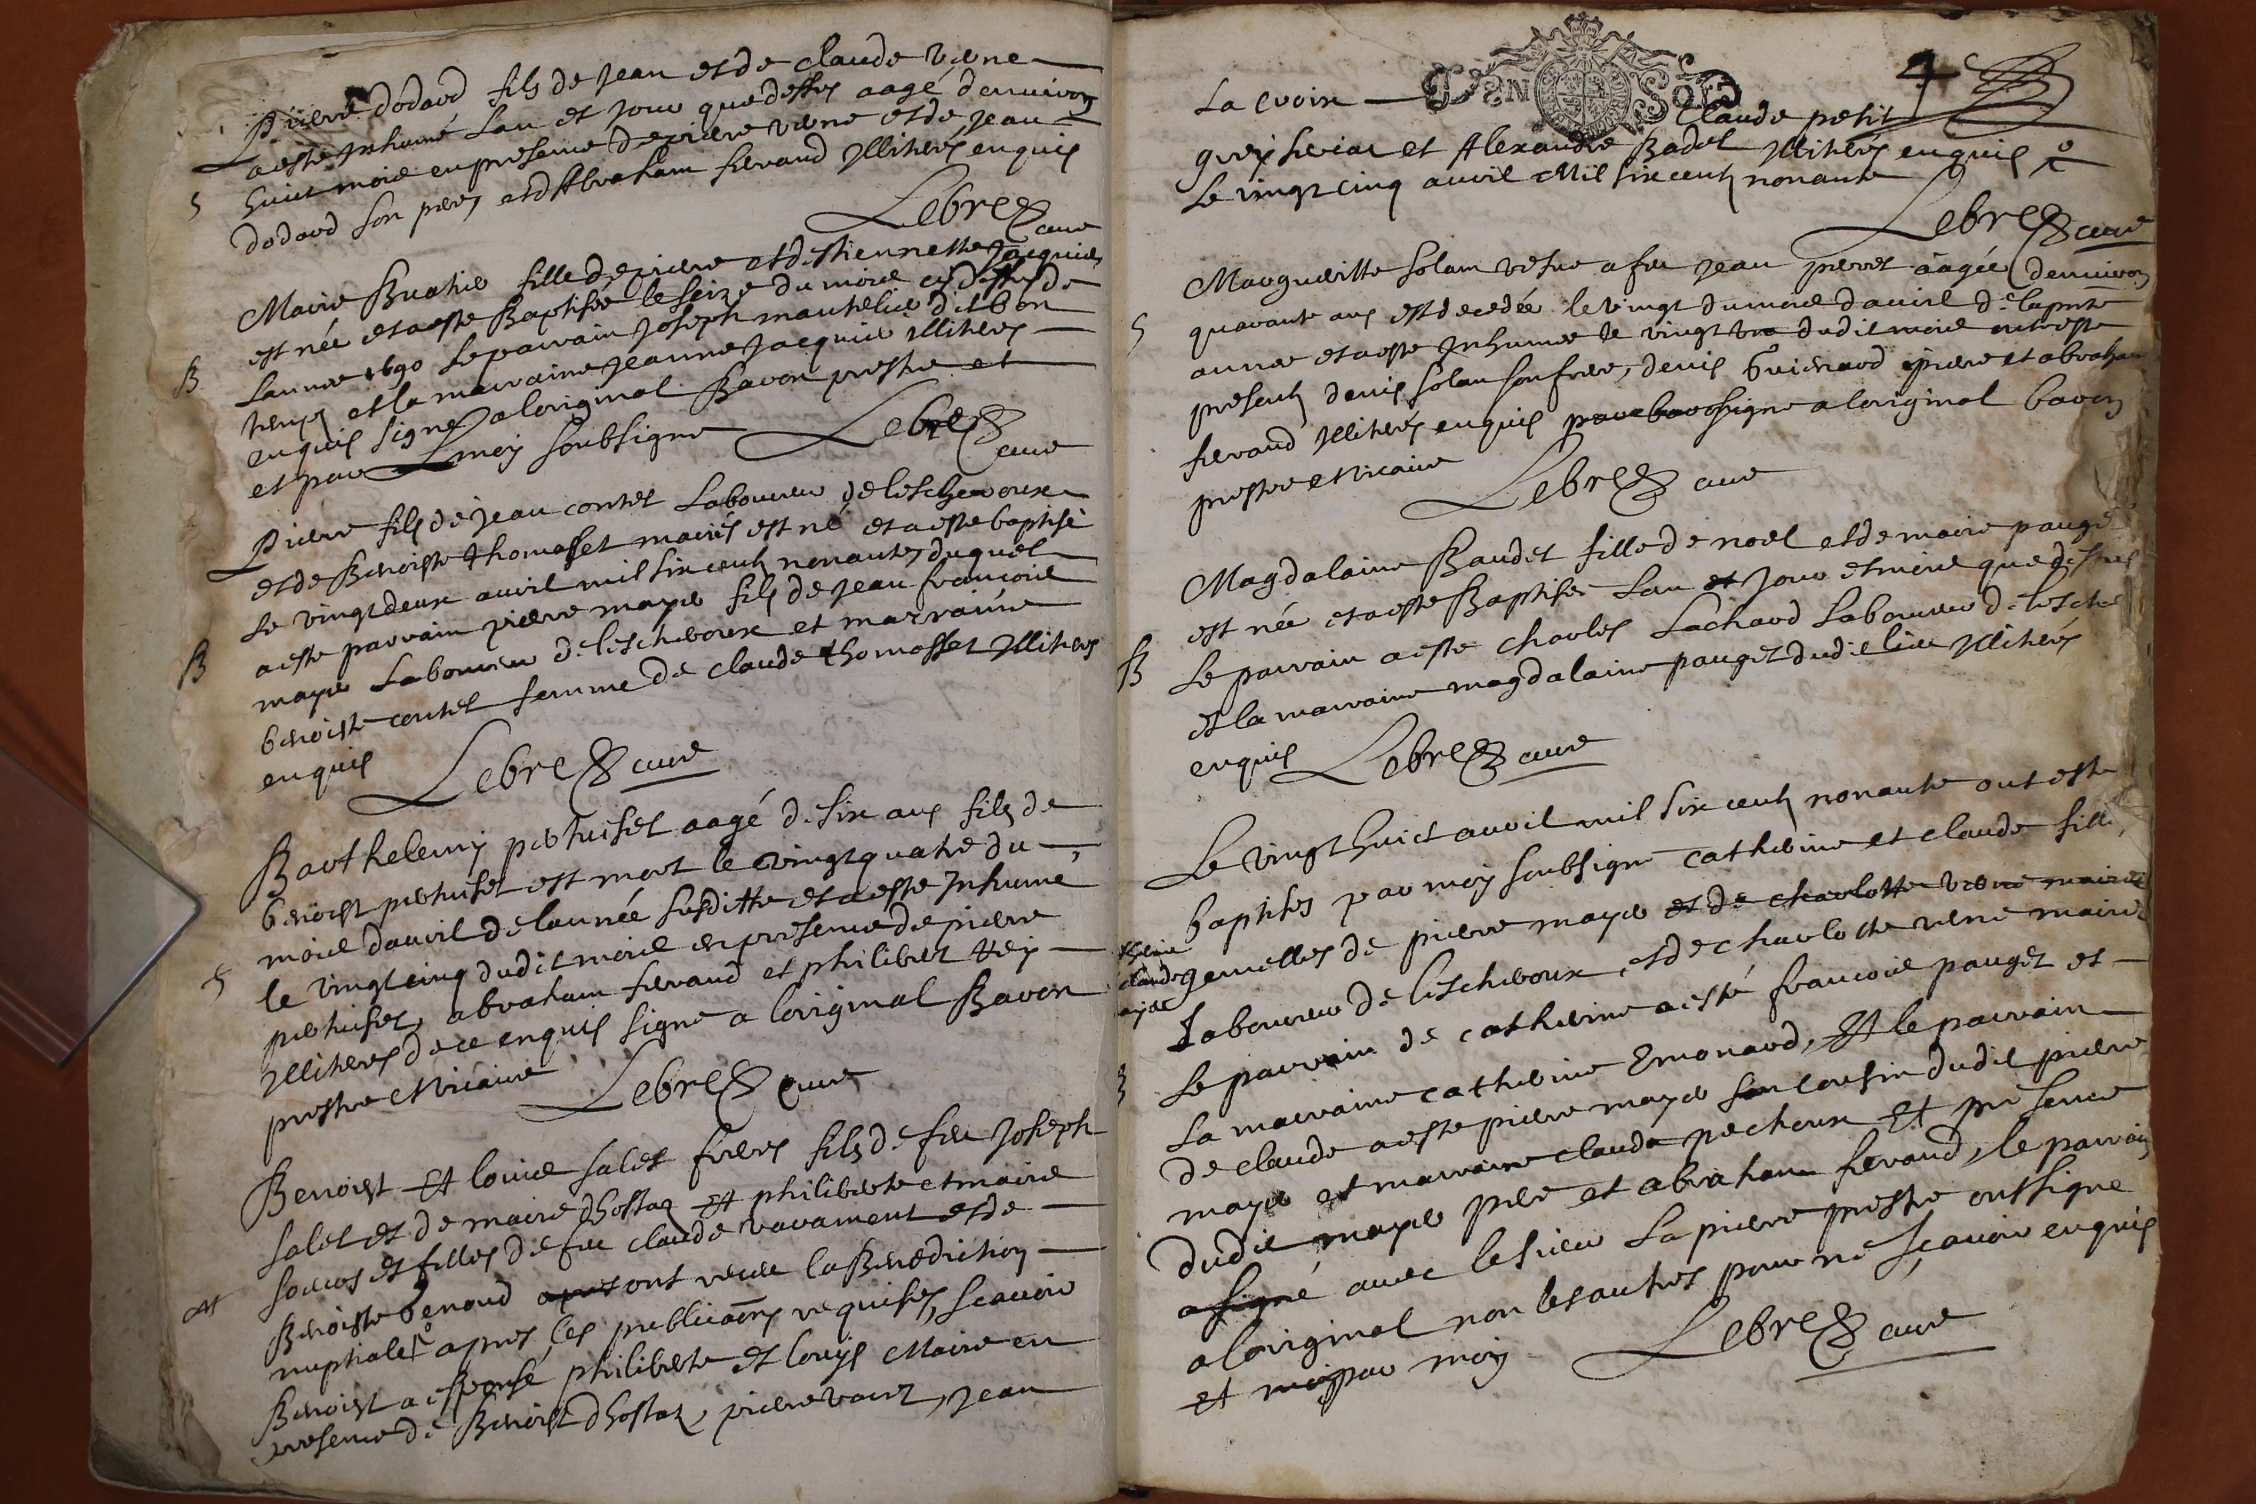 Pierre dodard fils de Jean et de Claude verne
a esté Inhumé Lan et Jour que dessus aagé d'enuiron
S huict mois en presence de pierre verne et de Jean
dodard son pere, et d'Abraham fieraud Illiterés enquis
Lebre curé
Marie fille de pierre et d'estiennette Jacquier
est née et a esté Baptisée le seize du mois cy dessus de
B Lannée 1690 Le parrain Joseph dit bon
temps et la marraine Jeanne Jacquier illiterés
enquis signé a loriginal Bavon prestre et
et par moy soubsigné Lebre curé
Pierre fils de Jean contet Laboureur de lescheroux
et de Benoiste thomasset mariés est né et a esté baptisé
Le vingt deux auril mil six cents nonante, duquel
B a esté parrain pierre mayer fils de Jean francois
mayer Laboureur de lescheroux et marraine
benoiste contet femme de claude thomasset Illiterés
enquis Lebre curé
Barthelemy pertuiset aagé de six ans fils de
benoist pertuiset est mort le vingt quatre du
mois dauril de lannée susditte et a esté Inhumé
S le vingt cinq dudit mois en presence de pierre
pertuiset, abraham fieraud et philibert
Illiterés de ce enquis signé a loriginal Bavon
prestre et vicaire Lebre curé
Benoist Et louis salet freres fils de feu Joseph
salet et de marie dhostaz Et philiberte et marie
soeurs et filles de feu claude vavament et de
M Benoiste benoud apres ont receu la Benediction
nuptiale apres les publicaons requises, scauoir
Benoist a espousé philiberte et louys Marie en
presence de Benoist dhostaz, pierre, Jean
La croix GEN SOLS 4
claude petit
et Alexandre Badet Illiterés enquis
Le vingt cinq auril Mil six cents nonante
Lebre curé
Margueritte solam vefue a feu Jean perret aagée denuiron
S quarante ans est decedée le vingt du mois dauril de la pnte
année et a esté Inhumée le vingt un dudit mois ont esté
presents denis solan son frere, denis Guienard pierre et abraham
fieraud Illiterés enquis par bavo signé a loriginal bavon
prestre et vicaire Lebre curé
Magdalaine Baudet fille de noel et de marie pauget
est née et a esté Baptisée Lan et Jour et mois que dessus
B Le parrain a esté charles Lachard Laboureur de lesche
et la marraine magdalaine pauget dudit lieu Illiterés
enquis Lebre curé
Le vingt huict auril mil six cents nonante ont esté
baptisés par moy soubsigné catherine et claude filles
gemelles de pierre mayer et de charlotte verne mariés
Laboureur de lescheroux, et de charlotte verne mariés
Le parrain de catherine a esté francois pauget et
La marraine catherine Emonard, Et le parrain
de claude a esté pierre mayer son cousin dudit pierre
mayer et marraine claude pechoux Et presence
dudit mayer pere et abraham fieraud, le parrain
a signé auec le sieur Lapierre prestre ont signé
a loriginal non les autres pour ne scauoir enquis
et par moy Lebre curé